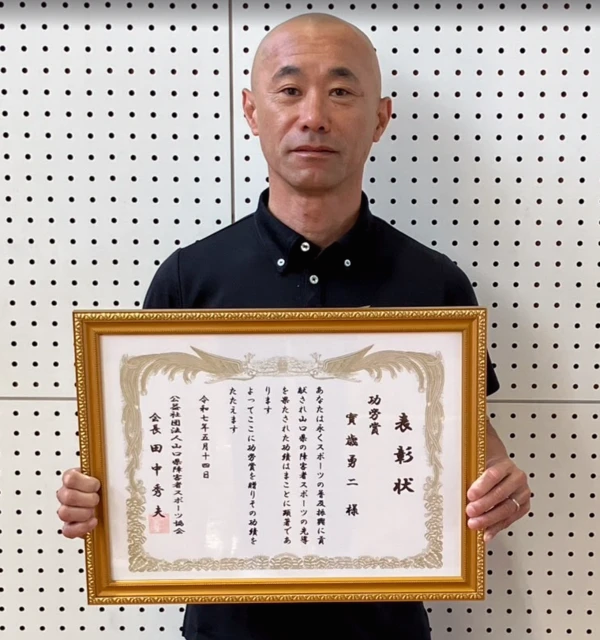 表彰状
功労賞
寳歳勇二 様
あなたは永くスポーツの普及振興に貢
献され山口県の障害者スポーツの先導
を果たされた功績はまことに顕著であ
ります
よってここに功労賞を贈りその功績を
たたえます
令和七年五月十四日
公益社団法人山口県障害者スポーツ協会
会長 田中秀夫